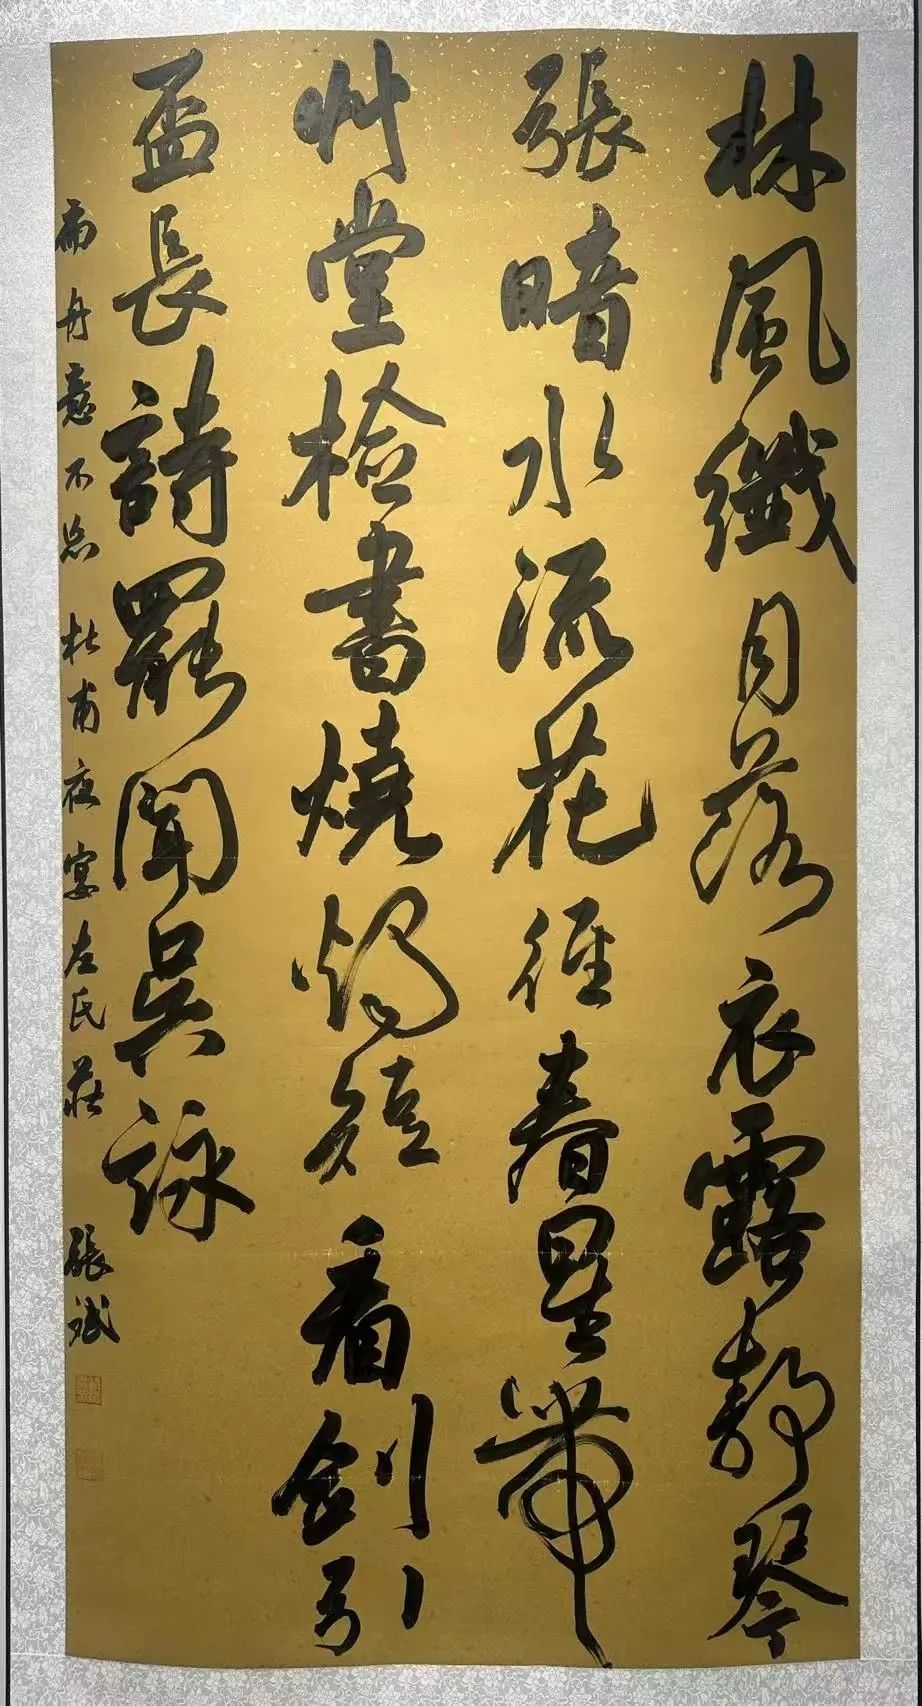 林風纖月落衣露静琴
張暗水流花徑春星帶
艸堂檢書燒燭短看劍引
盃長詩罷聞吳詠
扁舟意不忘 杜甫夜宴左氏莊 張斌